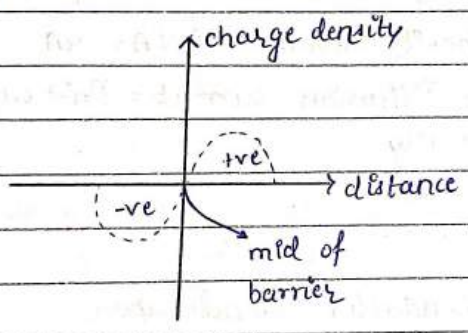 charge density
+ve
distance
-ve
mid of
barrier